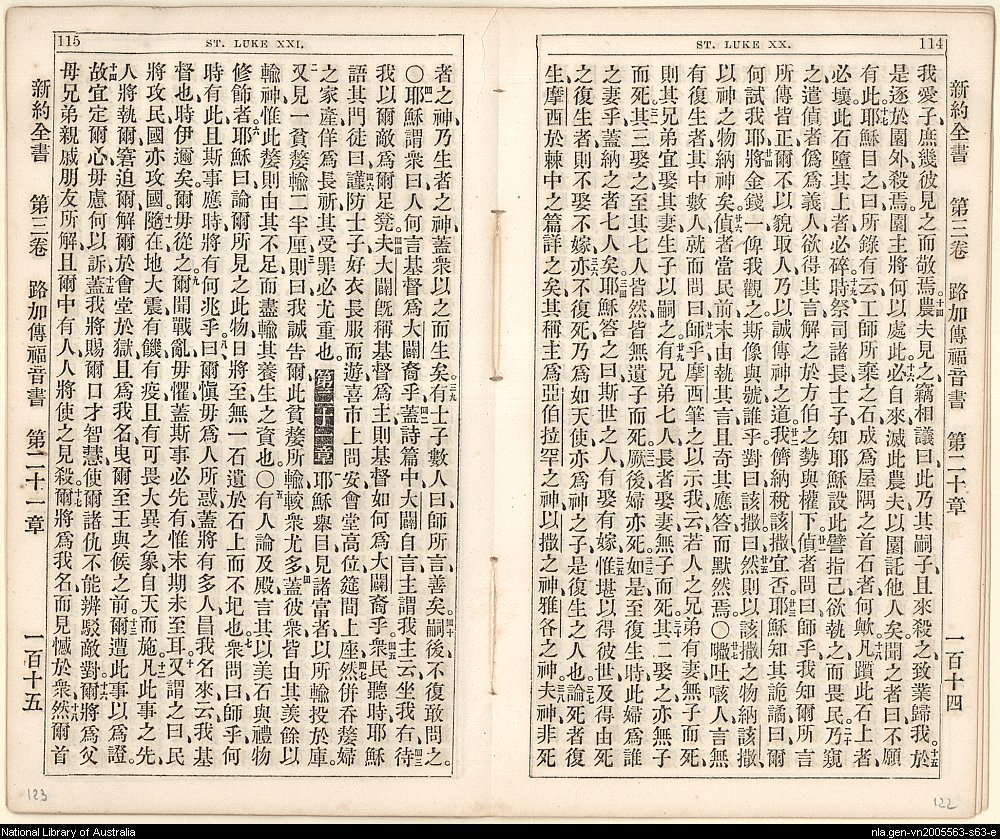 ST. LUKE XX.
114
新約全書 第三卷 路加傳福音書 第二十章 一百十四
我愛子庶幾彼見之而敬焉十四農夫見之竊相議曰此乃其嗣子且來殺之致業歸我十五於
是逐於園外殺焉園主將何以處此十六必自來滅此農夫以園託他人矣聞之者曰不願
有此十七耶穌目之曰所錄有云工師所棄之石成爲屋隅之首石者何歟十八凡躓此石上者
必壞此石墮其上者必碎十九時祭司諸長士子知耶穌設此譬指己欲執之而畏民二十乃窺
之遣偵者僞爲義人欲得其言解之於方伯之勢與權下廿一偵者問曰師乎我知爾所言
所傳皆正爾不以貌取人乃以誠傳神之道廿二我儕納稅該撒宜否廿三耶穌知其詭譎曰爾
何試我耶廿四將金錢一俾我觀之斯像與號誰乎對曰該撒廿五曰然則以該撒之物納該撒
以神之物納神矣廿六偵者當民前末由執其言且奇其應答而默然焉〇廿七㗭吐㖠人言無
復生者其中數人就而問曰廿八師乎摩西筆之以示我云若人之兄弟有妻無子而死
則其兄弟宜娶其妻生子以嗣之廿九有兄弟七人長者娶妻無子而死三十其二娶之亦無子
而死三一其三娶之至其七人皆然皆無遺子而死三二厥後婦亦死三三如是至復生時此婦爲誰
之妻乎蓋納之者七人矣三四耶穌答之曰斯世之人有娶有嫁三五惟堪以得彼世及得由死
之復生者則不娶不嫁三六亦不復死乃爲如天使亦爲神之子是復生之人也三七論死者復
生摩西於棘中之篇詳之矣其稱主爲亞伯拉罕之神以撒之神雅各之神三八夫神非死
122
115
ST. LUKE XXI.
者之神乃生者之神蓋衆以之而生矣三九有士子數人曰師所言善矣四十嗣後不復敢問之
〇四一耶穌謂衆曰人何言基督爲大闢裔乎四二蓋詩篇中大闢自言主謂我主云坐我右待
四三我以爾敵爲爾足凳四四夫大闢旣稱基督爲主則基督如何爲大闢裔乎四五衆民聽時耶穌
語其門徒曰四六謹防士子好衣長服而遊喜市上問安會堂高位筵間上座四七然併吞嫠婦
之家產佯爲長祈其受罪必尤重也第二十一章耶穌舉目見諸富者以所輸投於庫
二又見一貧嫠輸二半厘三則曰我誠告爾此貧嫠所輸較衆尤多四蓋彼衆皆由其羨餘以
輸神惟此嫠則由其不足而盡輸其養生之資也〇五有人論及殿言其以美石與禮物
修飾者六耶穌曰論爾所見之此物日將至無一石遺於石上而不圮也七衆問曰師乎何
時有此且斯事應時將有何兆乎八曰爾愼毋爲人所惑蓋將有多人冒我名來云我基
督也時伊邇矣爾毋從之九爾聞戰亂毋懼蓋斯事必先有惟末期未至耳十又謂之曰民
將攻民國亦攻國十一隨在地大震有饑有疫且有可畏大異之象自天而施十二凡此事之先
人將執爾窘迫爾解爾於會堂於獄且爲我名曳爾至王與侯之前十三爾遭此事以爲證
十四故宜定爾心毋慮何以訴十五蓋我將賜爾口才智慧使爾諸仇不能辨駁敵對十六爾將爲父
母兄弟親戚朋友所解且爾中有人人將使之見殺十七爾將爲我名而見憾於衆十八然爾首
新約全書 第三卷 路加傳福音書 第二十一章 一百十五
123
National Library of Australia
nla.gen-vn2005563-s63-e